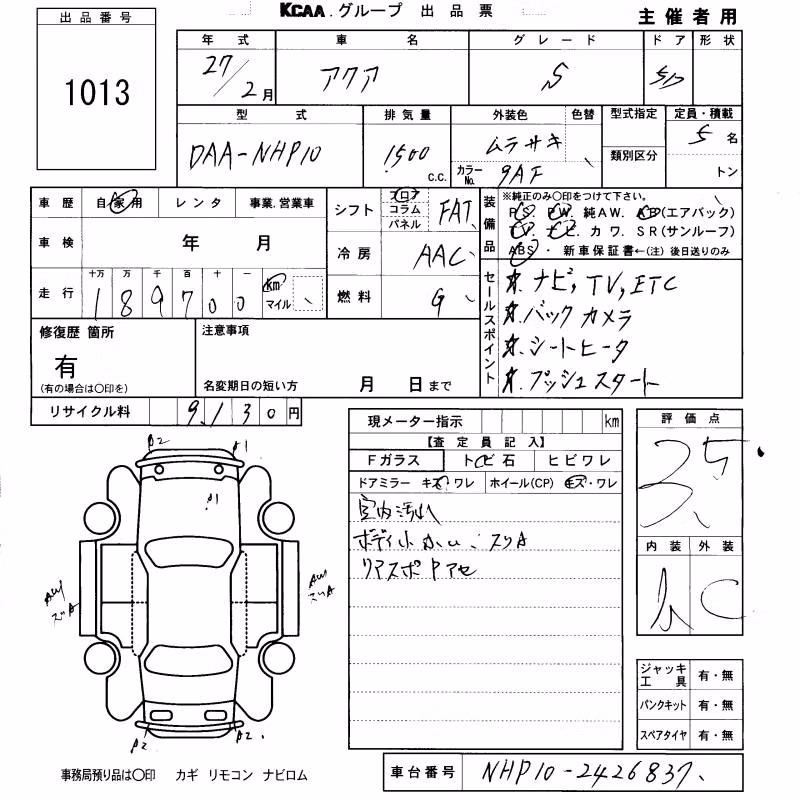 KCAA.グループ 出品票 主催者用
出品番号
1013
年式 車名 グレード ドア 形状
27/2月 アクア S 5D
型式 排気量 外装色 色替 型式指定 定員・積載
DAA-NHP10 1500 c.c. ムラサキ カラーNo. 9AF 類別区分 5名 トン
車歴 自家用 レンタ 事業.営業車
シフト フロア コラム パネル FAT
装備品 ※純正のみ○印をつけて下さい。
PS. PW. 純AW. AB(エアバック)
TV. ナビ. カワ. SR(サンルーフ)
ABS・新車保証書←(注)後日送りのみ
車検 年 月
冷房 AAC
走行 十万 万 千 百 十 一 km マイル
189700
燃料 G
セールスポイント
☆.ナビ,TV,ETC
☆.バック カメラ
☆.シートヒータ
☆.プッシュスタート
修復歴 箇所
有
(有の場合は○印を)
注意事項
名変期日の短い方 月 日まで
リサイクル料 9,130円
現メーター指示 km
【査定員記入】
Fガラス トビ石 ヒビワレ
ドアミラー キズ ワレ ホイール(CP) キズ・ワレ
室内汚れ
ボディ小
リアスポ Pアセ
評価点
3.5
内装 外装
C
A2 A1
A1
AW スリA
AW スリA
A2 A2
ジャッキ工具 有・無
パンクキット 有・無
スペアタイヤ 有・無
事務局預り品は○印 カギ リモコン ナビロム
車台番号 NHP10-2426837